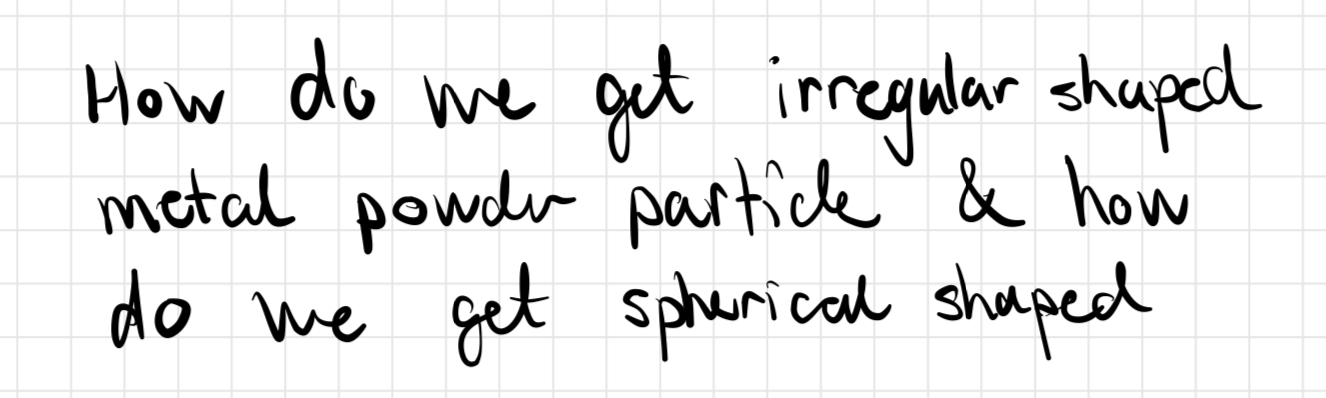 How do we get irregular shaped
metal powder particle & how
do we get spherical shaped